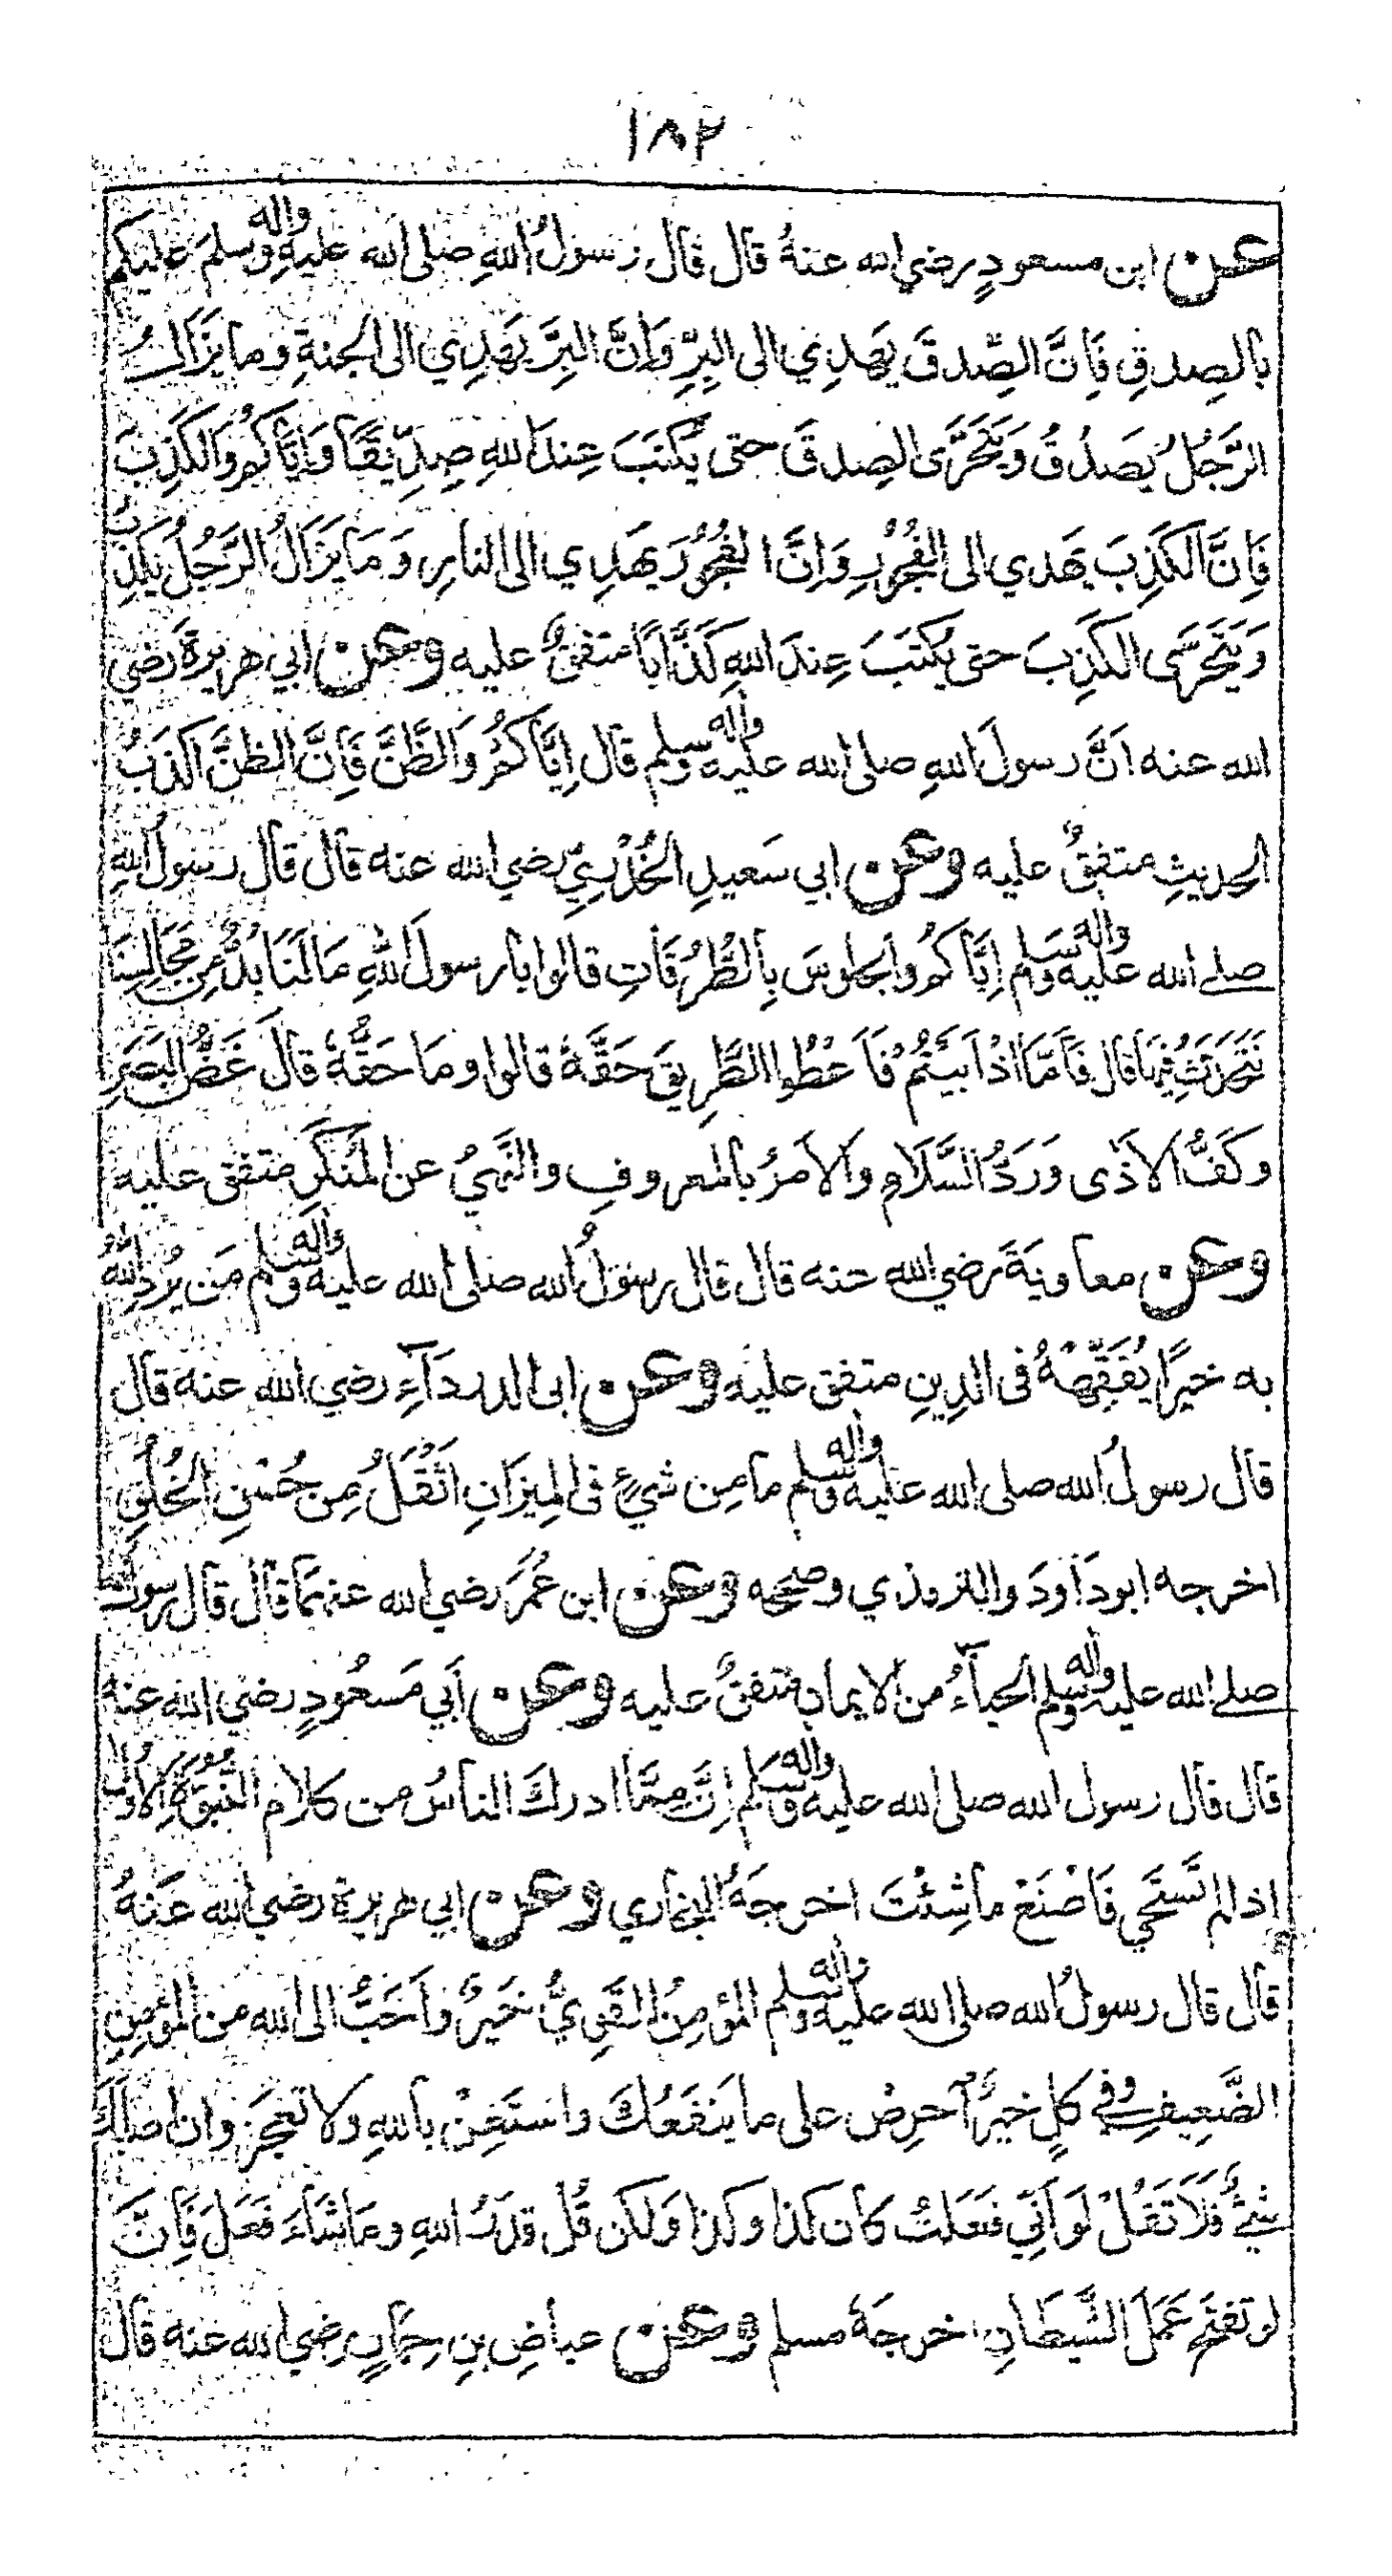 ١٨٢
عن ابن مسعودٍ رضي الله عنهُ قال قال رسولُ اللهِ صلى الله عليهِ وآله وسلمَ عليكم
بالصِدقِ فَاِنَّ الصِّدقَ يَهدِي الى البِرِّ وَاِنَّ البِرَّ يَهدِي الى الجنةِ وما يزَالُ
الرَّجُلُ يَصدُقُ وَيَتَحَرَّى الصِدقَ حتى يُكتَبَ عِندَ اللهِ صِدِّيقًا وَاِيَّاكُم وَالكَذِبَ
فَاِنَّ الكَذِبَ يَهدي الى الفُجُورِ وَاِنَّ الفُجُورَ يَهدِي الى النارِ وَمَا يَزَالُ الرَّجُلُ يَكذِبُ
وَيَتَحَرَّى الكَذِبَ حتى يُكتَبَ عِندَ اللهِ كَذَّابًا متفقٌ عليه وعن ابي هريرةَ رضي
الله عنه انَّ رسولَ اللهِ صلى الله عليه وآله وسلم قال اِيَّاكُم وَالظَّنَّ فَاِنَّ الظنَّ اكذَبُ
الحديثِ متفقٌ عليه وعن ابي سَعيدِ الخُدْرِيِّ رضي الله عنه قال قال رسولُ اللهِ
صلى الله عليه وآله وسلم اِيَّاكُم والجلوسَ بِالطُّرُقَاتِ قالوا يا رسولَ اللهِ مَا لَنَا بُدٌّ مِن مَجَالِسِنَا
نَتَحَدَّثُ فِيهَا قال فَاَمَّا اذْ اَبَيْتُمْ فَاَعْطُوا الطَّرِيقَ حَقَّهُ قالوا وما حَقُّهُ قالَ غَضُّ البَصَرِ
وكَفُّ الاَذَى وَرَدُّ السَّلَامِ والاَمرُ بالمعروفِ والنَّهيُ عن المُنكَرِ متفق عليه
وعن معاويةَ رضي الله عنه قال قال رسولُ الله صلى الله عليه وآله وسلم مَن يُرِدِ اللهُ
به خيرًا يُفَقِّههُ فى الدِينِ متفق عليه وعن ابى الدرداءِ رضي الله عنه قال
قال رسولُ الله صلى الله عليه وآله وسلم ما مِن شيءٍ فى المِيزَانِ اَثقَلُ مِن حُسْنِ الخُلُقِ
اخرجه ابو داَودَ والترمذي وصححه وعن ابن عُمَرَ رضي الله عنهمَا قال قال رسول الله
صلى الله عليه وآله وسلم الحياءُ من الايمانِ متفقٌ عليه وعن أَبي مَسعُودٍ رضي الله عنه
قال قال رسول الله صلى الله عليه وآله وسلم اِنَّ مِمَّا ادرك الناسُ من كلام النُّبُوَّةِ الاُولى
اذا لم تَستَحي فَاصْنَعْ ما شِئْتَ اخرجهُ البخاري وعن ابي هريرة رضي الله عنهُ
قال قال رسولُ الله صلى الله عليه وآله وسلم المؤمِنُ القَوِيُّ خَيرٌ واَحَبُّ الى اللهِ من المؤمِنِ
الضَّعِيفِ وفي كلٍ خيرٌ اَحرِصْ على ما يَنفَعُكَ واستَعِنْ باللهِ ولا تعجَز وان اصابَكَ
شيءٌ فَلَا تَقُلْ لَو اَنِّي فَعَلتُ كان كذا وكذا وَلكن قُل قَدَّرُ اللهِ وما شَاءَ فَعَلَ فَاِنَّ
لو تفتح عَمَلَ الشَّيطَانِ اخرجَهُ مسلم وعن عياضِ بنِ حِمَارٍ رضي الله عنه قال